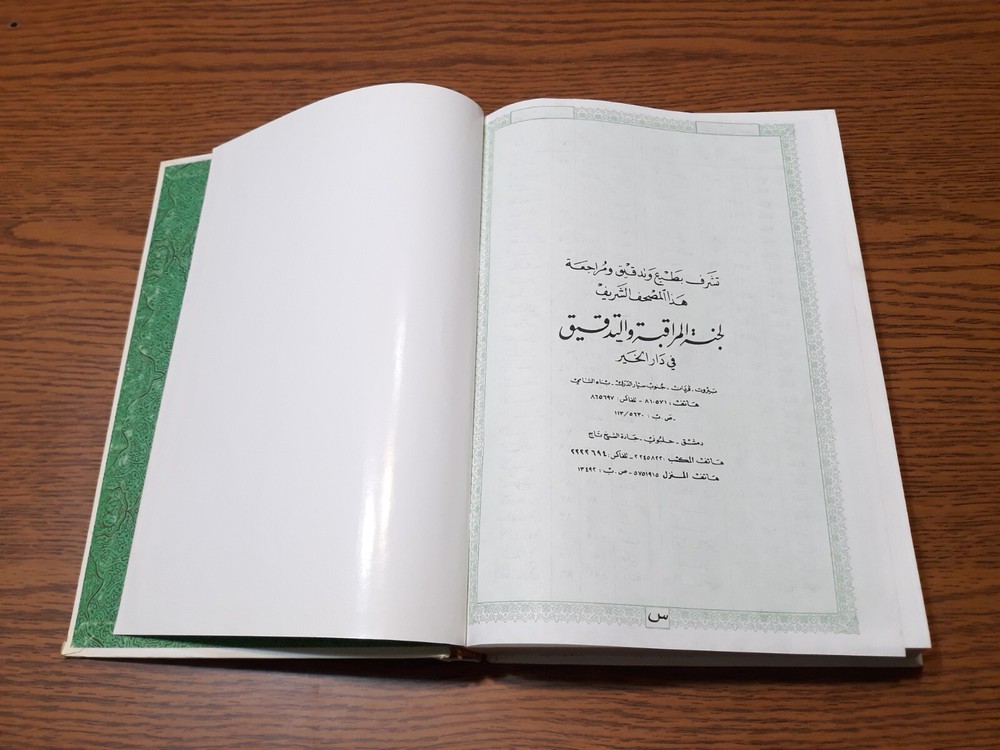 تشرف بطبع وتدقيق ومراجعة
هذا المصحف الشريف
لجنة المراقبة والتدقيق
في دار الخير
بيروت - فردان - جنوب سيار الدرك - بناء الشامي
هاتف: ٨١٠٥٧١ - تلفاكس: ٨٦٥٦٩٧
ص.ب: ١١٣/٥٦٣٠
دمشق - حلبوني - جادة الشيخ تاج
هاتف المكتب: ٢٢٤٥٨٢٢ - تلفاكس: ٢٢٢٢٦٩٤
هاتف المنزل ٥٧٥١٩١٥ - ص.ب: ١٣٤٩٢
س